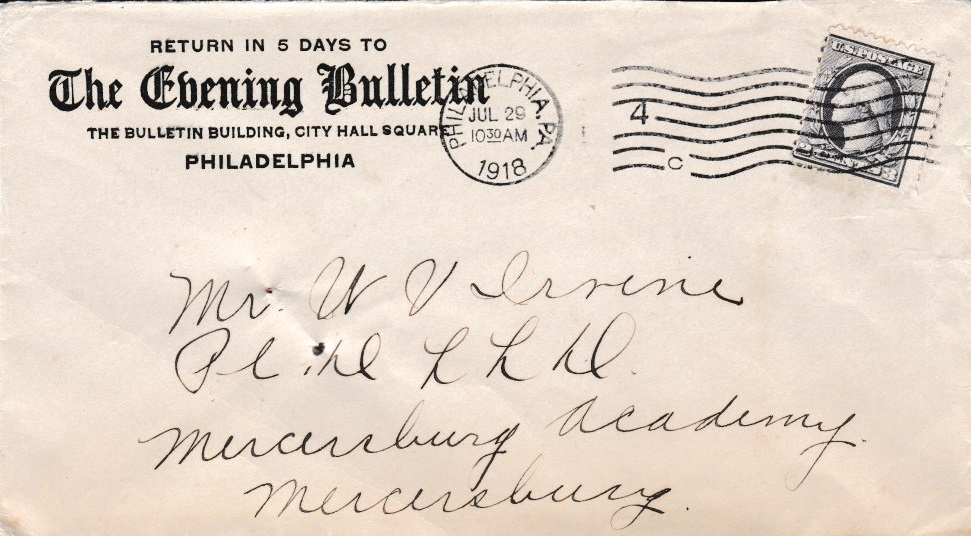 RETURN IN 5 DAYS TO
The Evening Bulletin
THE BULLETIN BUILDING, CITY HALL SQUARE
PHILADELPHIA
PHILADELPHIA, PA.
JUL 29
10 30 AM
1918
4
C
U.S. POSTAGE
Mr. W V Irvine
Ph. D L L D.
Mercersburg Academy.
Mercersburg.